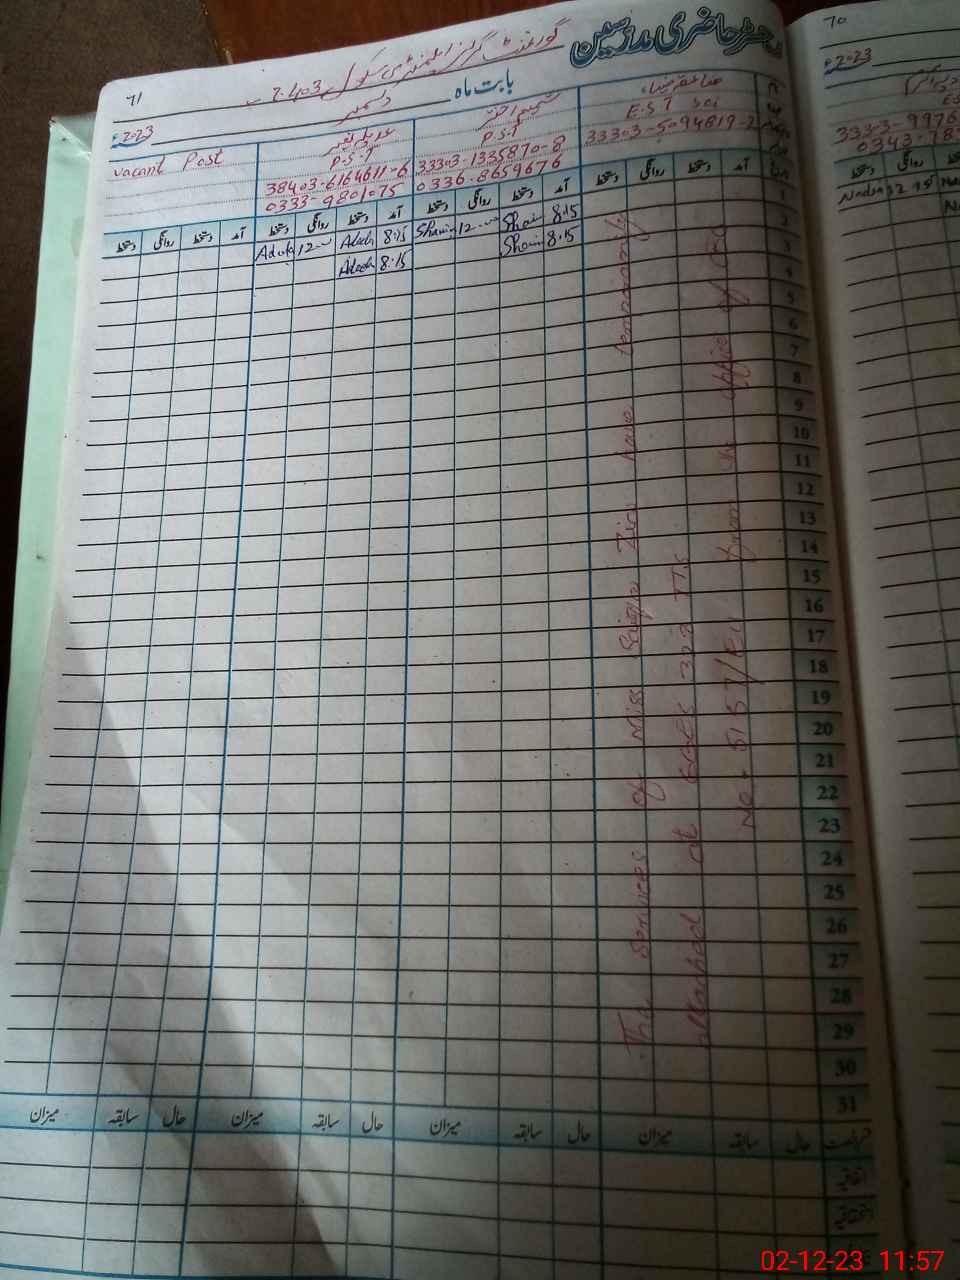 رجسٹر حاضری مدرسین
گورنمنٹ گرلز ایلمنٹری سکول 2.403
71
بابت ماہ دسمبر
2023ء
صاعقہ ضیاء
E.S.T Sci
33303-5094619-2
شمیم اختر
P.S.T
33303-1335870-8
0336-8659676
P.S.T
38403-6164611-6
0333-9801075
vacant Post
آمد دستخط روانگی دستخط آمد دستخط روانگی دستخط آمد دستخط روانگی دستخط آمد دستخط روانگی دستخط
1 8:15 12 8:15 12
2 8:15 8:15
3
4
5
6
7
8
9
10
11
12
13
14
15
16
17
18
19
20
21
22
23
24
25
26
27
28
29
30
31
The Services of Miss Saiqa Zia have temporarily
attached at GGES 322 TTS
No- 5157/EU from the office of CEO
رخصت حال سابقہ میزان حال سابقہ میزان حال سابقہ میزان حال سابقہ میزان
اتفاقیہ
استحقاقیہ
70
2023ء
روانگی
12 15
02-12-23 11:57